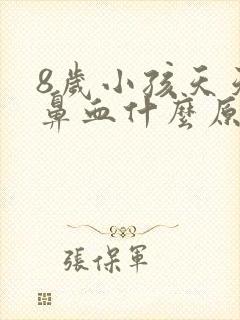 8歲小孩天天
鼻血什麼原
張保軍